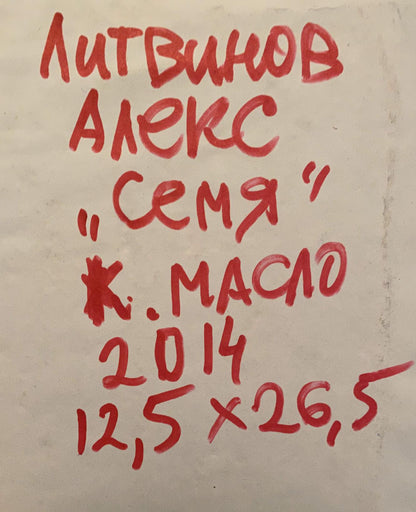 Литвинов
Алекс
„Семя"
К. масло
2014
12,5 x 26,5